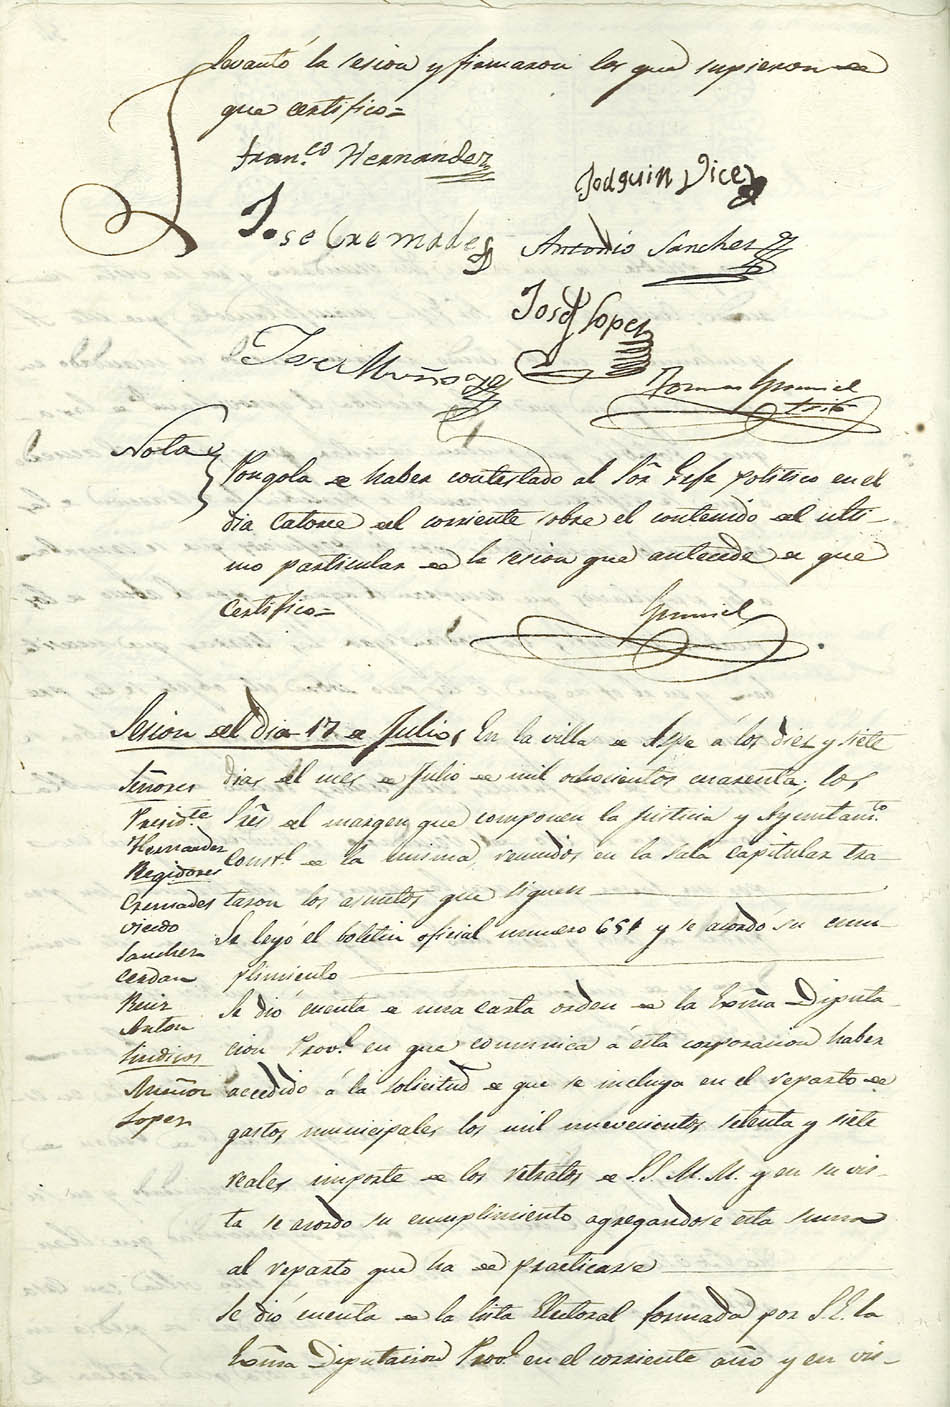 levantó la sesion y firmaron los que supieron de
que certifico=
Fran.co Hernandez
Joaquin Vicedo
Jose Cremades
Antonio Sanchez
José Lopez
Jose Muñoz
Tomas
Srio
Nota
Pongola de haber contestado al Sõr Gefe politico en el
dia Catorce del corriente sobre el contenido del ulti-
mo particular de la sesion que antecede de que
Certifico=
Sesion del dia 17 de Julio, En la villa de Aspe á los diez y siete
dias del mes de Julio de mil ochocientos cuarenta, los
Sres del margen que componen la Justicia y Ayuntam.to
Const.l de la misma, reunidos en la sala capitular tra-
taron los asuntos que siguen
Señores
Presid.te
Hernandez
Regidores
Cremades
Vicedo
Sanchez
Cerdan
Ruiz
Anton
Sindicos
Muñoz
Lopez
Se leyó el boletin oficial numero 651 y se acordó su cum-
plimiento
Se dió cuenta de una carta orden de la Exma Diputa-
cion Prov.l en que comunica á esta corporacion haber
accedido á la solicitud de que se incluya en el reparto de
gastos municipales los mil nuevecientos setenta y siete
reales importe de los retratos de S.S. M.M. y en su vis-
ta se acordo su cumplimiento agregandose esta suma
al reparto que ha de practicarse
Se dió cuenta de la lista Electoral formada por S.E. la
Exma Diputacion Prov.l en el corriente año y en vis-